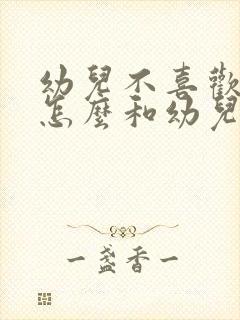 幼兒不喜歡
怎麼和幼兒
一盞香一